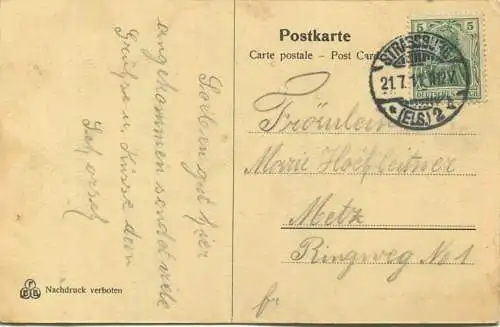 Postkarte
Carte postale – Post Card
5 5
STRASSBURG
21.7.11. 11-12 V.
* (ELS.) 2 k
DEUTSCHES
Soeben gut hier
angekommen sendet viele
Grüsse u. Küsse dein
Fräulein
Marie Hoefleitner
Metz
Ringweg No 1
fr
Nachdruck verboten